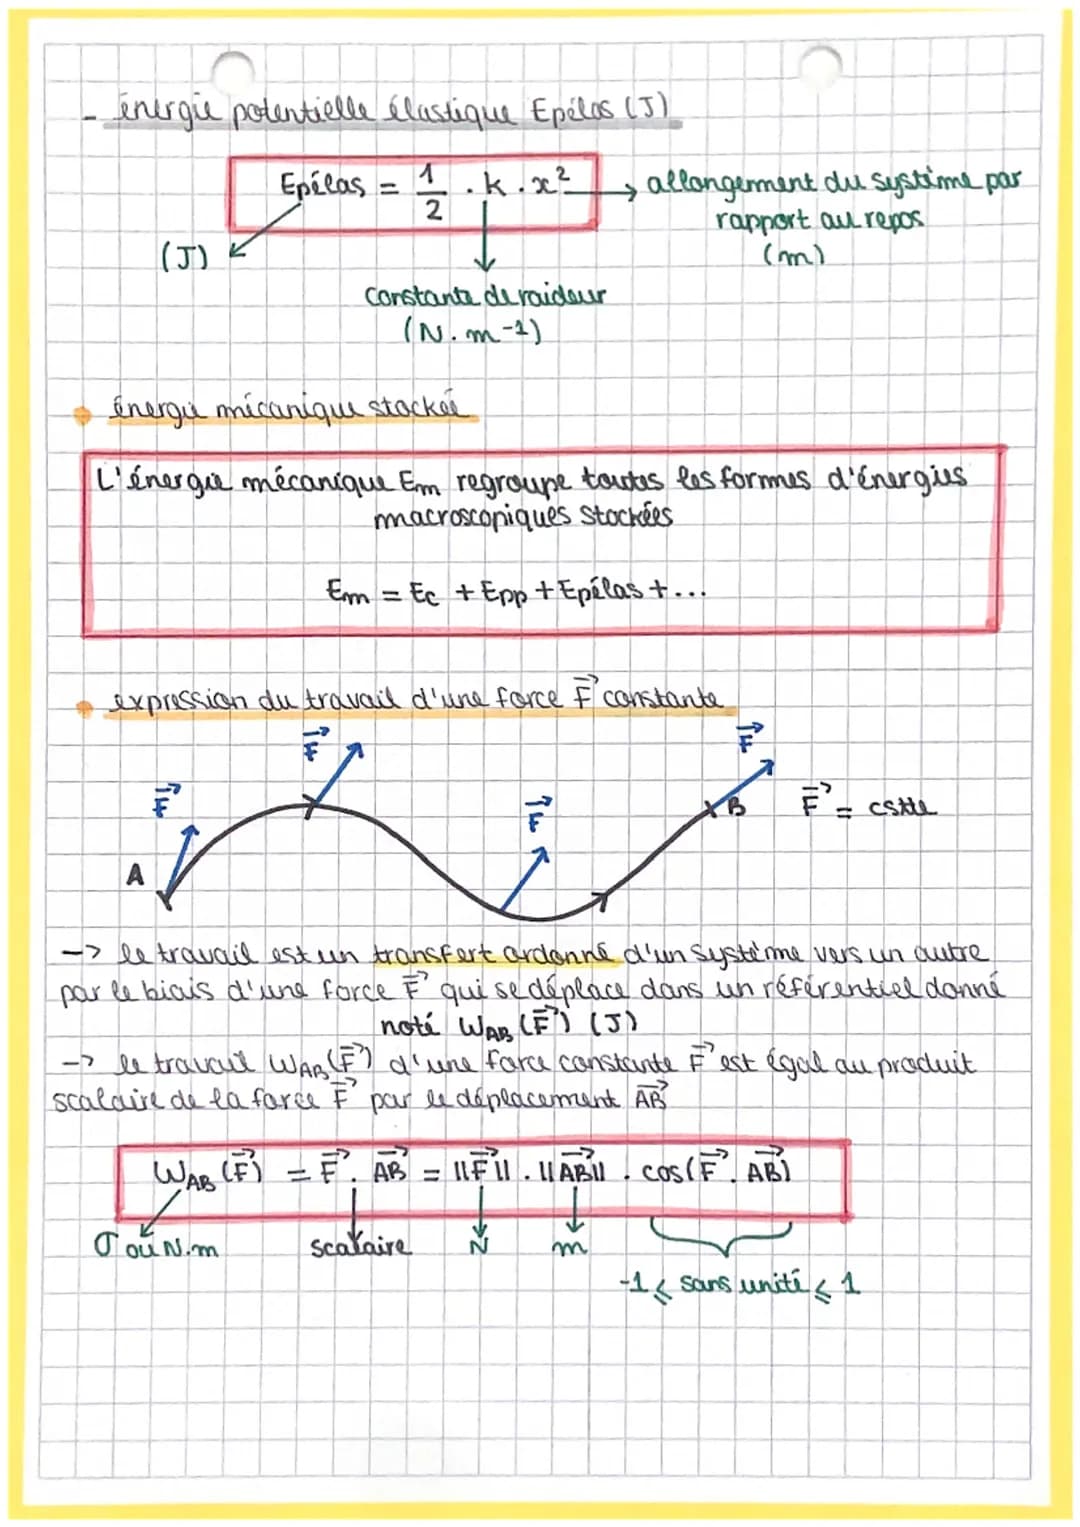 - énergie potentielle élastique Epélas (J)
Epélas = 1/2 . k . x² → allongement du système par
rapport au repos
(J)
(m)
constante de raideur
(N.m-1)
énergie mécanique stockée
L'énergie mécanique Em regroupe toutes les formes d'énergies
macroscopiques stockées
Em = Ec + Epp + Epélas + ...
expression du travail d'une force F⃗ constante
F⃗ F⃗ F⃗ F⃗
A B F⃗ = cstte
-> le travail est un transfert ordonné d'un système vers un autre
par le biais d'une force F⃗ qui se déplace dans un référentiel donné
noté WAB (F⃗) (J)
-> le travail WAB(F⃗) d'une force constante F⃗ est égal au produit
scalaire de la force F⃗ par le déplacement AB⃗
WAB (F⃗) = F⃗ . AB⃗ = ||F⃗|| . ||AB⃗|| . cos(F⃗ . AB⃗)
J ou N.m scalaire N m
-1 ⩽ sans unité ⩽ 1